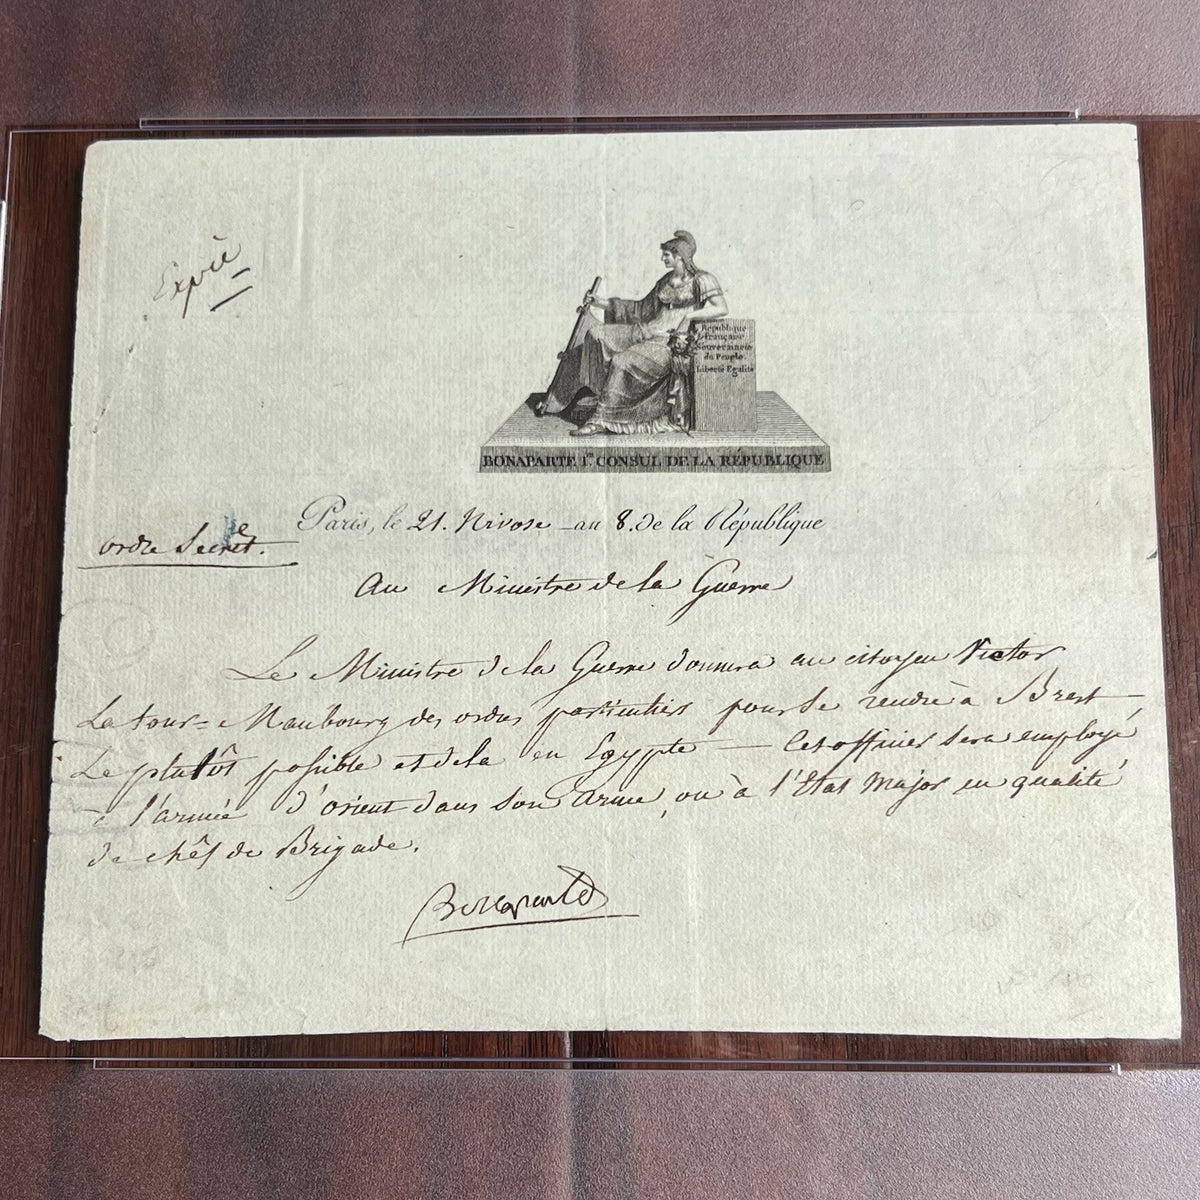 Expié
République
française
Souveraineté
du Peuple.
Liberté Egalité
BONAPARTE 1.er CONSUL DE LA RÉPUBLIQUE
Paris, le 21. Nivose an 8. de la République
ordre Secret.
Au Ministre de la Guerre
Le Ministre de la Guerre donnera au citoyen Victor
La tour = Maubourg des ordres particuliers pour se rendre à Brest
Le plutôt possible et de la en Egypte — Cet officier sera employé
à l'armée d'orient dans son arme, ou à l'Etat Major en qualité
de chêf de Brigade.
Bonaparte